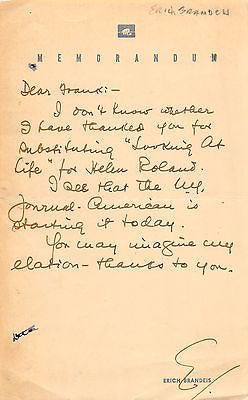 ERICH BRANDEIS
MEMORANDUM
Dear Frank:-
I don't know whether
I have thanked you for
substituting "Looking At
Life" for Helen Roland.
I see that the N.Y.
Journal-American is
starting it today.
You may imagine my
elation - thanks to you.
E.
ERICH BRANDEIS